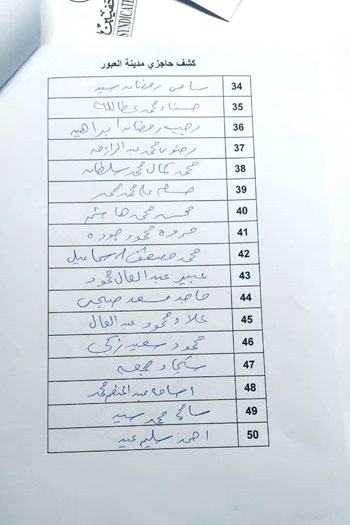 SYNDICATE
كشف حاجزي مدينة العبور
34 سامى رمضان سيد
35 حسناء محمد عطا الله
36 رجب رمضان ابراهيم
37 رضوى محمد عبد الرازق
38 محمد كمال محمد سلطان
39 حسام على محمد محمد
40 محسن محمد هاشم
41 مروه محمود جوده
42 محمد مصطفى اسماعيل
43 عبير عبد العال محمود
44 حامد مسعد
45 علاء محمود عبد العال
46 محمود سعيد زكى
47 جمعه
48 اسامه عبد المنعم محمد
49 سامح محمد سيد
50 احمد سليم عيد